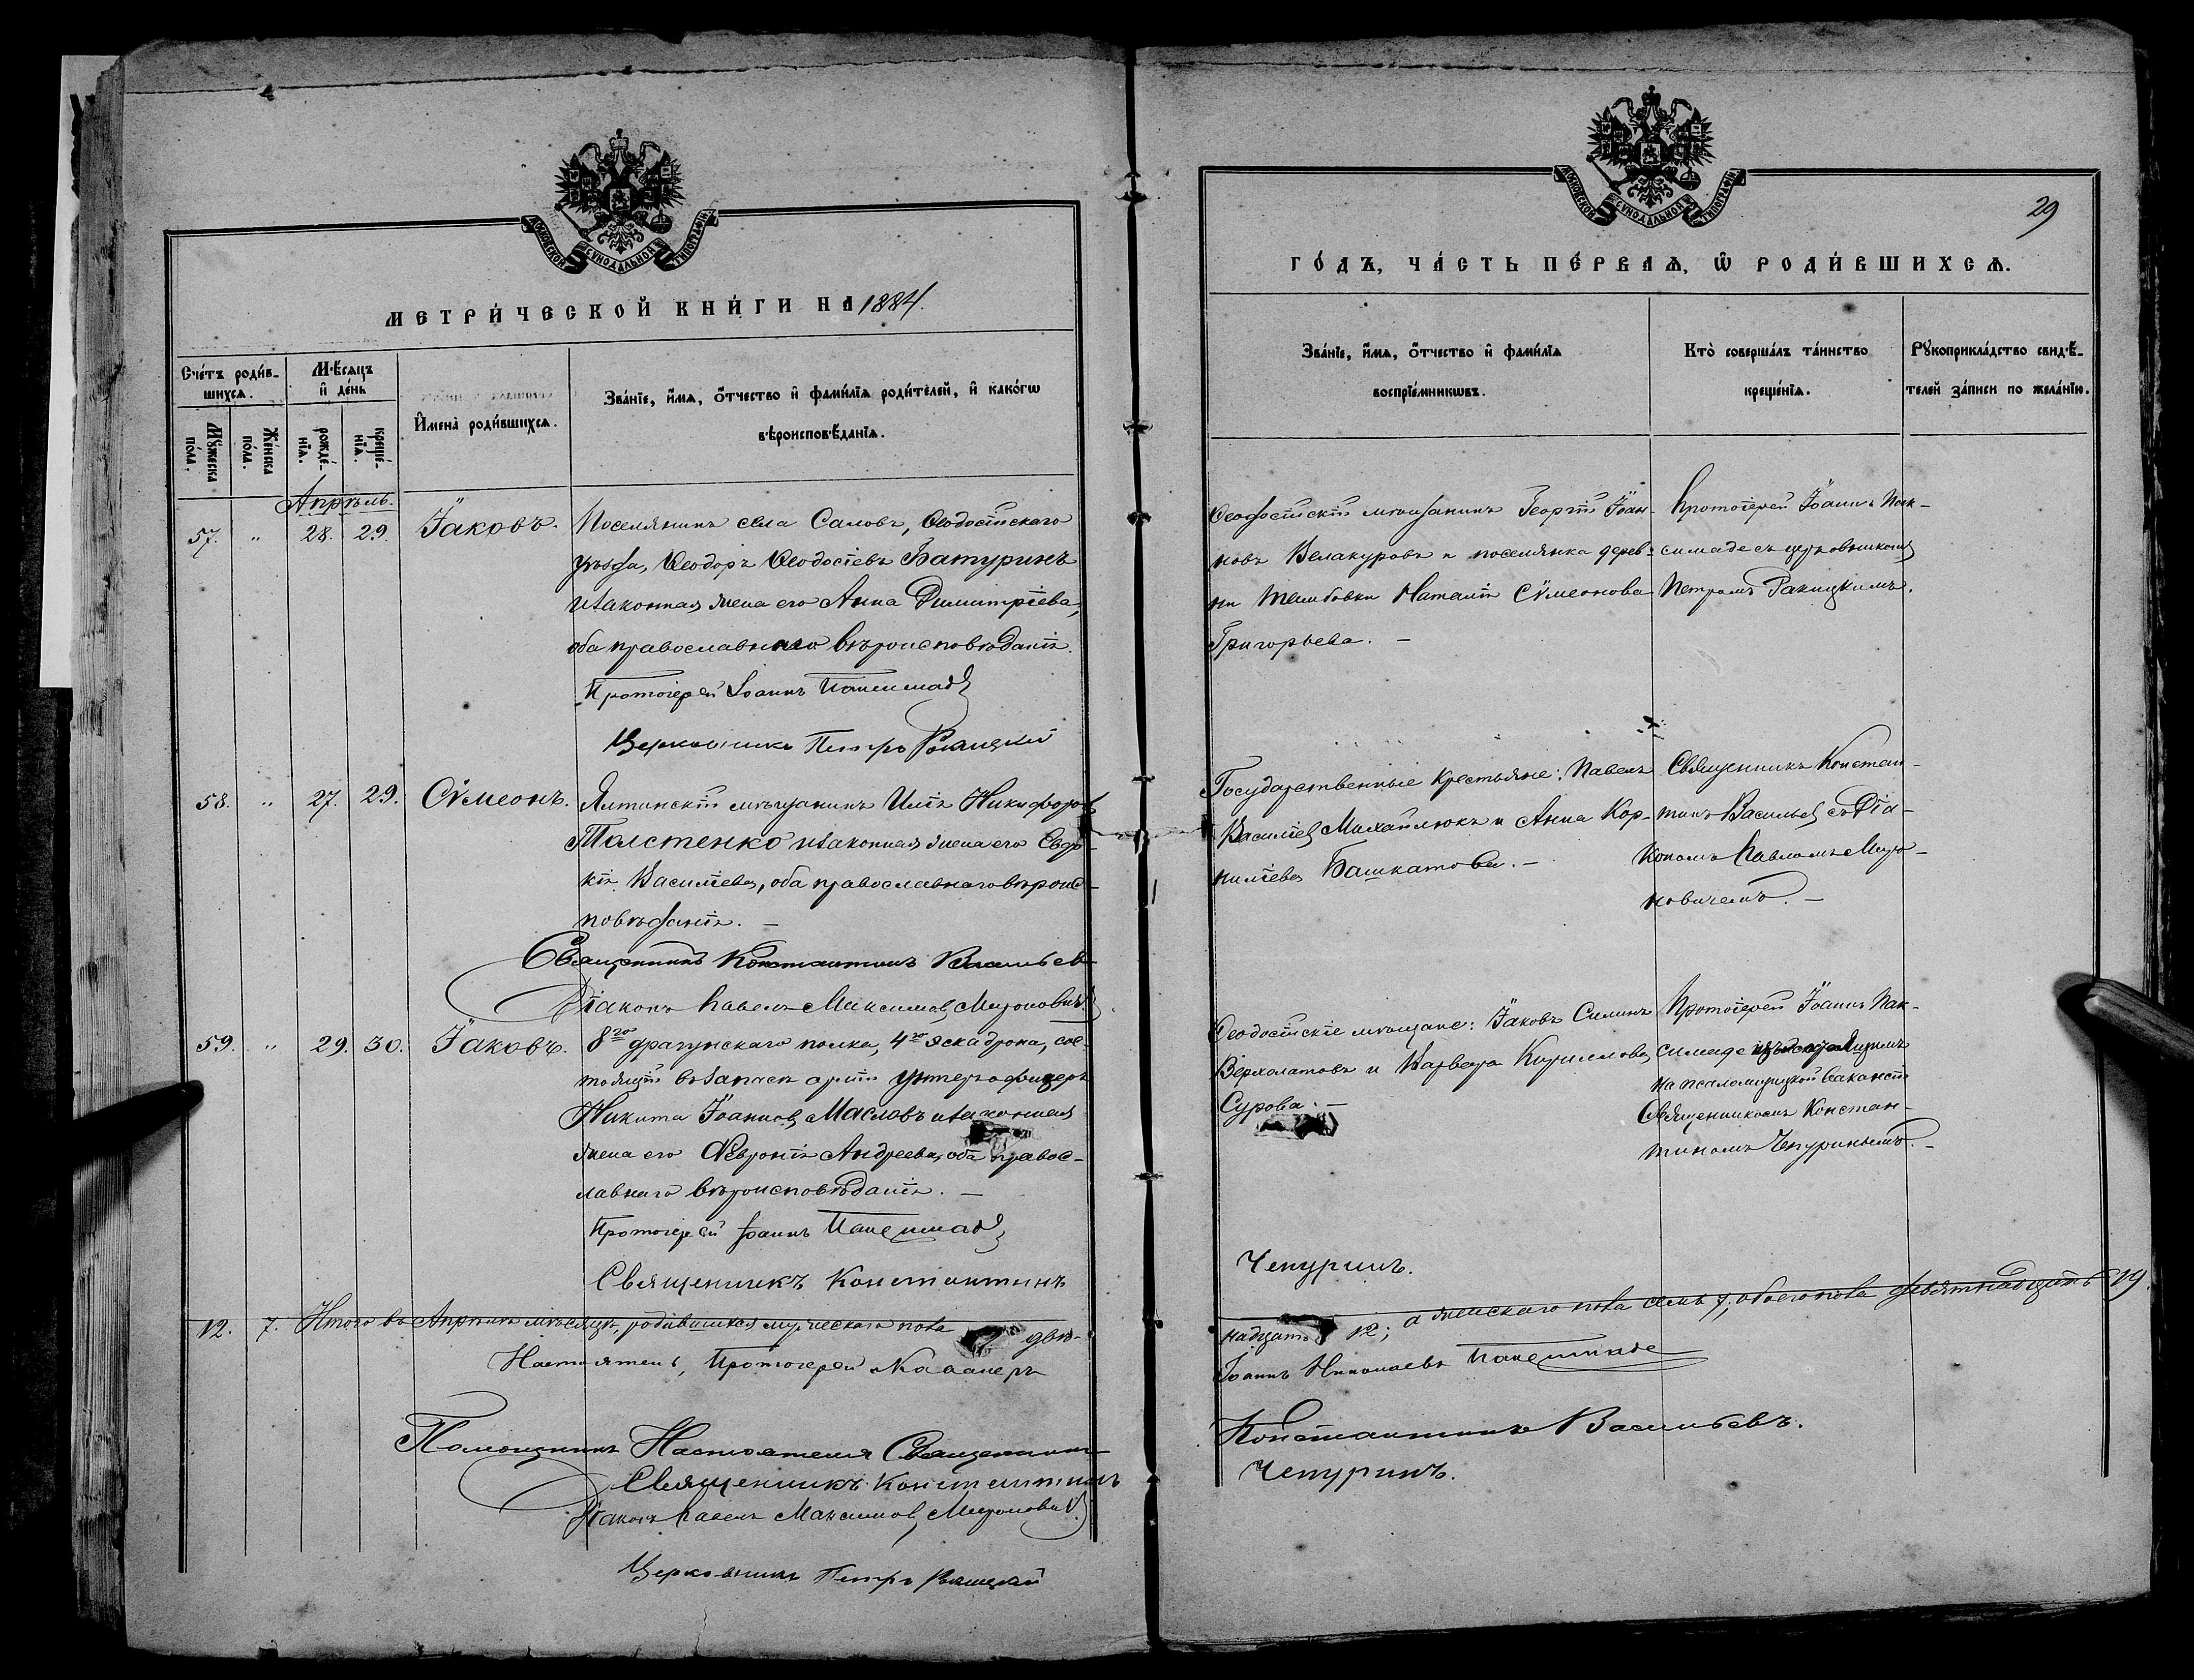 МОСКОВСКОЙ СУНОДАЛЬНОЙ ТИПОГРАФІИ
МЕТРИ́ЧЕСКОЙ КНИ́ГИ НА 1884.
Сче́тъ роди́в-
шихсѧ.
Мꙋ́жеска по́ла.
Же́нска по́ла.
Мѣ́сѧцъ
и҆ де́нь
рожде́-
нїѧ.
креще́-
нїѧ.
И҆мена̀ роди́вшихсѧ.
Зва́нїе, и҆́мѧ, ѻ҆́тчество и҆ фами́лїѧ роди́телей, и҆ како́гѡ
вѣроисповѣ́данїѧ.
Апрѣль.
57. " 28. 29. Іаковъ.
Поселянинъ села Саловъ, Ѳеодосійскаго
уѣзда, Ѳеодоръ Ѳеодосіевъ Батуринъ
и законная жена его Анна Димитріева,
оба православнаго вѣроисповѣданія.
Протоіерей Іоаннъ Пакисмаде
Церковникъ Петръ Ракицкій
58. " 27. 29. Сѵмеонъ.
Ялтинскій мѣщанинъ Илія Никифоров
Толстенко и законная жена его Евдо-
кія Васильева, оба православнаго вѣроис-
повѣданія. —
Священникъ Константинъ Васильевъ
Діаконъ Павелъ Максимов Мироновичъ
59. " 29. 30. Іаковъ.
8го драгунскаго полка, 4го эскадрона, сос-
тоящій въ запасѣ арміи унтеръ офицеръ
Никита Іоаннов Масловъ и законная
жена его Ѳеѵронія Андреева, оба правос-
лавнаго вѣроисповѣданія. —
Протоіерей Іоаннъ Пакисмаде
Священникъ Константинъ
12. 7. Итого въ Апрѣлѣ мѣсяцѣ, родившихся мужескаго пола двѣ-
Настоятель, Протоіерей Кавалеръ
Помощникъ Настоятеля Священникъ
Священникъ Константинъ
Діаконъ Павелъ Максимов Мироновичъ
Церковникъ Петръ Ракицкій
МОСКОВСКОЙ СУНОДАЛЬНОЙ ТИПОГРАФІИ
29
ГО́ДЪ, ЧА́СТЬ ПЕ́РВАѦ, Ѡ҆ РОДИ́ВШИХСѦ.
Зва́нїе, и҆́мѧ, ѻ҆́тчество и҆ фами́лїѧ
воспрїе́мникѡвъ.
Кто̀ соверша́лъ та́инство
креще́нїѧ.
Рꙋкоприкла́дство свидѣ́-
телей за́писи по жела́нїю.
Ѳеодосійскій мѣщанинъ Георгій Іоан-
новъ Велакуровъ и поселянка дерев-
ни Тамбовки Наталія Сѵмеонова
Григорьева. —
Протоіерей Іоаннъ Пак-
исмаде съ церковникомъ
Петромъ Ракицкимъ.
Государственные крестьяне: Павелъ
Василіев Михайлюкъ и Анна Кор-
нилиева Башкатова. —
Священникъ Констан-
тинъ Васильев съ Діа-
кономъ Павломъ Миро-
новичемъ. —
Ѳеодосійскіе мѣщане: Іаковъ Силинъ
Верхолатовъ и Варвара Кириллова
Сурова. —
Протоіерей Іоаннъ Пак-
исмаде
на псаломщицкой вакансіи
Священникомъ Констан-
тиномъ Чепуринымъ. —
Чепуринъ.
надцать 12; а женскаго пола семь 7, обоего пола девятнадцать 19.
Іоаннъ Николаевъ Пакисмаде
Константинъ Васильевъ.
Чепуринъ.